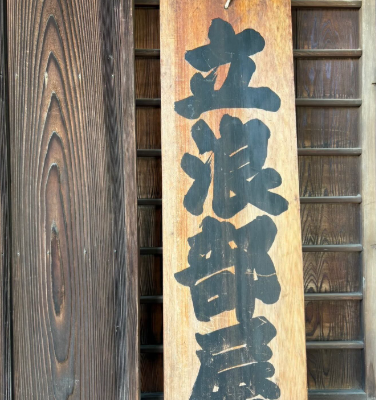 立浪部屋